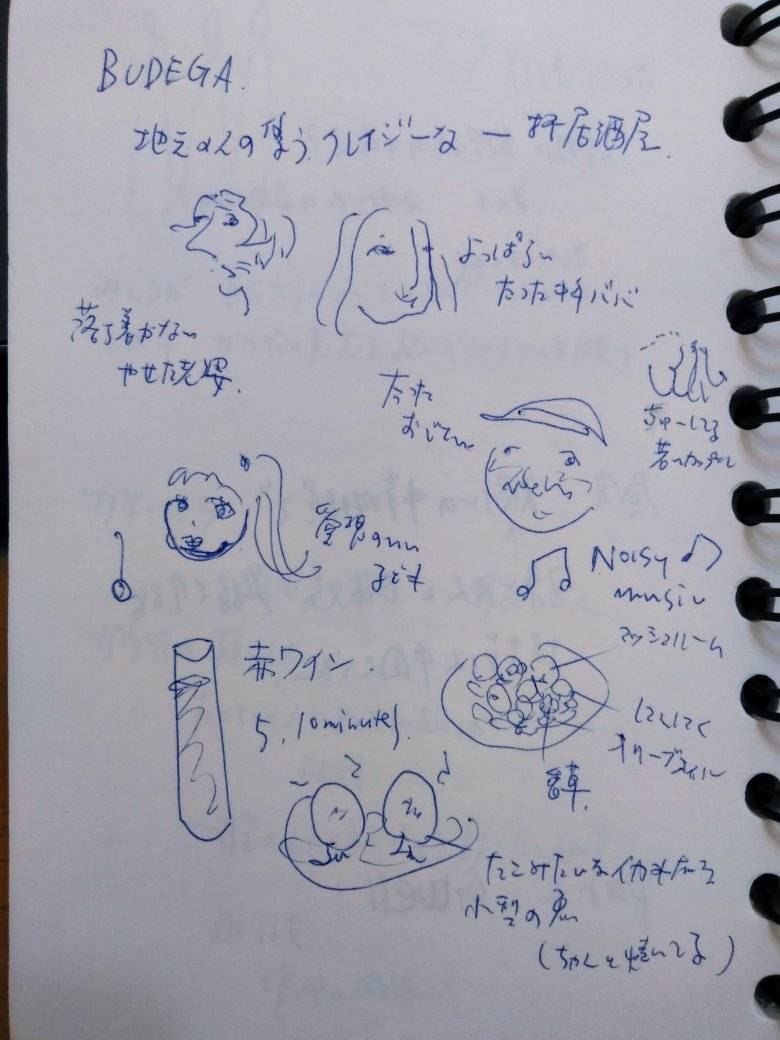 BUDEGA.
地元の人の使う、クレイジーな 一杯居酒屋.
よっぱらい
たった ババ
落ち着かない
やせた老婆.
たった
おじさん
ちゅーしてる
若いカップル
愛想のいい
子ども
Noisy
music
マッシュルーム
赤ワイン.
5.10 minutes.
にんにく
オリーブオイル
香草.
たこみたいなイカみたいな
小型の魚
(ちゃんと焼いてる)